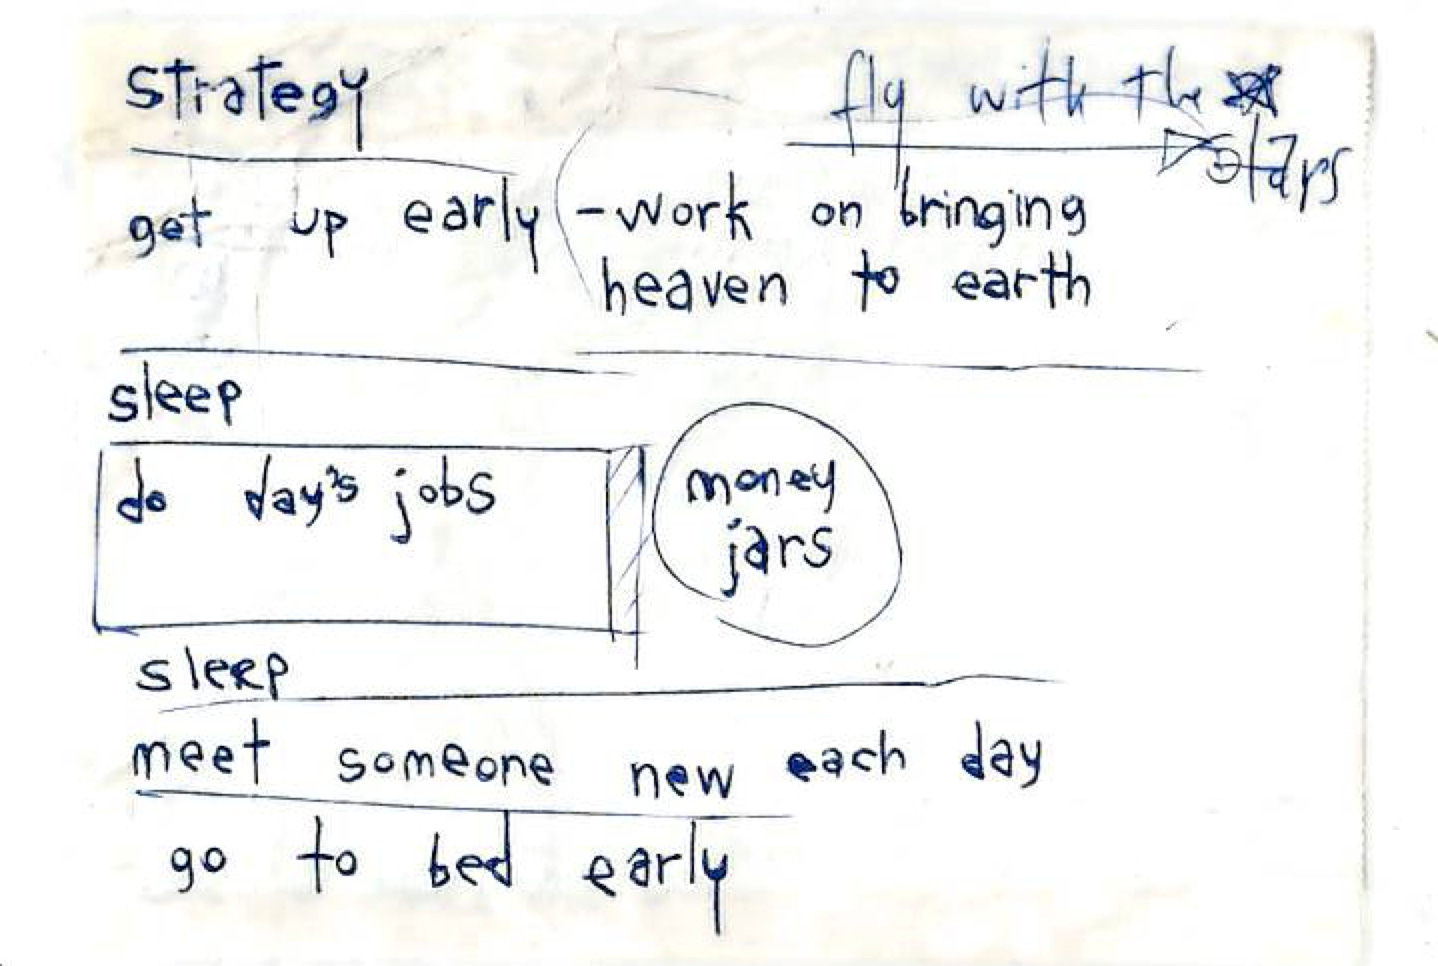 strategy
fly with the
stars
get up early - work on bringing
heaven to earth
sleep
do day's jobs
money
jars
sleep
meet someone new each day
go to bed early